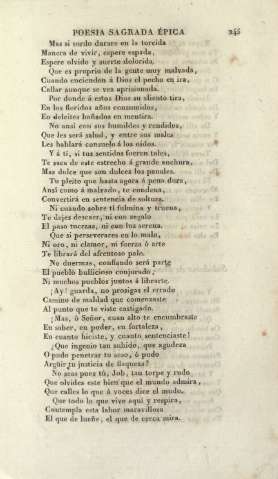 POESIA SAGRADA ÉPICA 245
Mas si sordo durares en la torcida
Manera de vivir, espere espada,
Espere olvido y suerte dolorida.
Que es proprio de la gente muy malvada,
Cuando encienden á Dios el pecho en ira,
Callar aunque se vea aprisionada.
Por donde á estos Dios su aliento tira,
En los floridos años consumidos,
En deleites bañados en mentira.
No ansí con sus humildes y rendidos,
Que les será salud, y entre sus males
Les hablará consuelo á los oidos.
Y á ti, si tus sentidos fueren tales,
Te saca de este estrecho á grande anchura,
Mas dulce que son dulces los panales.
Tu pleito que hasta agora á pena dura,
Ansí como á malvado, te condena,
Convertirá en sentencia de soltura.
Ni cuando sobre ti fulmina y truena,
Te dejes descaer, ni con regalo
El paso tuerzas, ni con luz serena.
Que si perseverares en lo malo,
Ni oro, ni clamor, ni fuerza ó arte
Te librará del afrentoso palo.
No duermas, confiando será parte
El pueblo bullicioso conjurado,
Ni muchos pueblos juntos á librarte.
¡Ay! guarda, no prosigas el errado
Camino de maldad que comenzaste
Al punto que te viste castigado.
¡Mas, ó Señor, cuan alto te encumbraste
En saber, en poder, en fortaleza,
En cuanto hiciste, y cuanto sentenciaste!
¿Que ingenio tan subido, que agudeza
O pudo penetrar tu seso, ó pudo
Argüir tu justicia de flaqueza?
No seas pues tú, Job, tan torpe y rudo
Que olvides este bien que el mundo admira,
Que calles lo que á voces dice el mudo.
Que todo lo que vive aqui y respira,
Contempla esta labor maravillosa
El que de lueñe, el que de cerca mira.